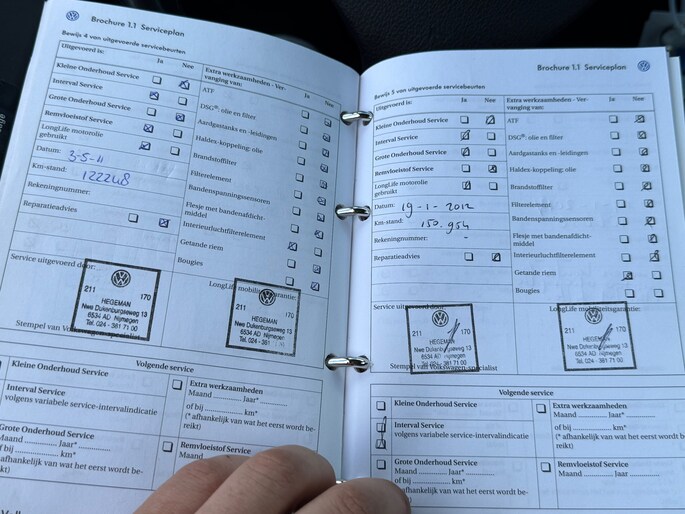 Brochure 1.1 Serviceplan
Bewijs 4 van uitgevoerde servicebeurten
Uitgevoerd is: Ja Nee
Kleine Onderhoud Service
Interval Service
Grote Onderhoud Service
Remvloeistof Service
LongLife motorolie
gebruikt
Datum: 3-5-11
Km-stand: 122248
Rekeningnummer:
Reparatieadvies
Extra werkzaamheden - Ver-
vanging van: Ja Nee
ATF
DSG®: olie en filter
Aardgastanks en -leidingen
Haldex-koppeling: olie
Brandstoffilter
Filterelement
Bandenspanningssensoren
Flesje met bandenafdicht-
middel
Interieurluchtfilterelement
Getande riem
Bougies
Service uitgevoerd door:
LongLife mobiliteitsgarantie:
211 170
HEGEMAN
Nwe Dukenburgseweg 13
6534 AD Nijmegen
Tel. 024 - 381 71 00
211 170
HEGEMAN
Nwe Dukenburgseweg 13
6534 AD Nijmegen
Tel. 024 - 381
Stempel van Volkswagen-specialist
Volgende service
Kleine Onderhoud Service
Interval Service
volgens variabele service-intervalindicatie
Grote Onderhoud Service
Maand ............ Jaar* ............
of bij ............ km*
(* afhankelijk van wat het eerst wordt be-
reikt)
Extra werkzaamheden
Maand ............ Jaar* ............
of bij ............ km*
(* afhankelijk van wat het eerst wordt be-
reikt)
Remvloeistof Service
Maand
Brochure 1.1 Serviceplan
Bewijs 5 van uitgevoerde servicebeurten
Uitgevoerd is: Ja Nee
Kleine Onderhoud Service
Interval Service
Grote Onderhoud Service
Remvloeistof Service
LongLife motorolie
gebruikt
Datum: 19-1-2012
Km-stand: 150.954
Rekeningnummer: -
Reparatieadvies
Extra werkzaamheden - Ver-
vanging van: Ja Nee
ATF
DSG®: olie en filter
Aardgastanks en -leidingen
Haldex-koppeling: olie
Brandstoffilter
Filterelement
Bandenspanningssensoren
Flesje met bandenafdicht-
middel
Interieurluchtfilterelement
Getande riem
Bougies
Service uitgevoerd door:
LongLife mobiliteitsgarantie:
211 170
HEGEMAN
Nwe Dukenburgseweg 13
6534 AD Nijmegen
Tel. 024 - 381 71 00
211 170
HEGEMAN
Nwe Dukenburgseweg 13
6534 AD Nijmegen
Tel. 024 - 381 71 00
Stempel van Volkswagen-specialist
Volgende service
Kleine Onderhoud Service
Interval Service
volgens variabele service-intervalindicatie
Grote Onderhoud Service
Maand ............ Jaar* ............
of bij ............ km*
(* afhankelijk van wat het eerst wordt be-
Extra werkzaamheden
Maand ............ Jaar* ............
of bij ............ km*
(* afhankelijk van wat het eerst wordt be-
reikt)
Remvloeistof Service
Maand ............ Jaar ............